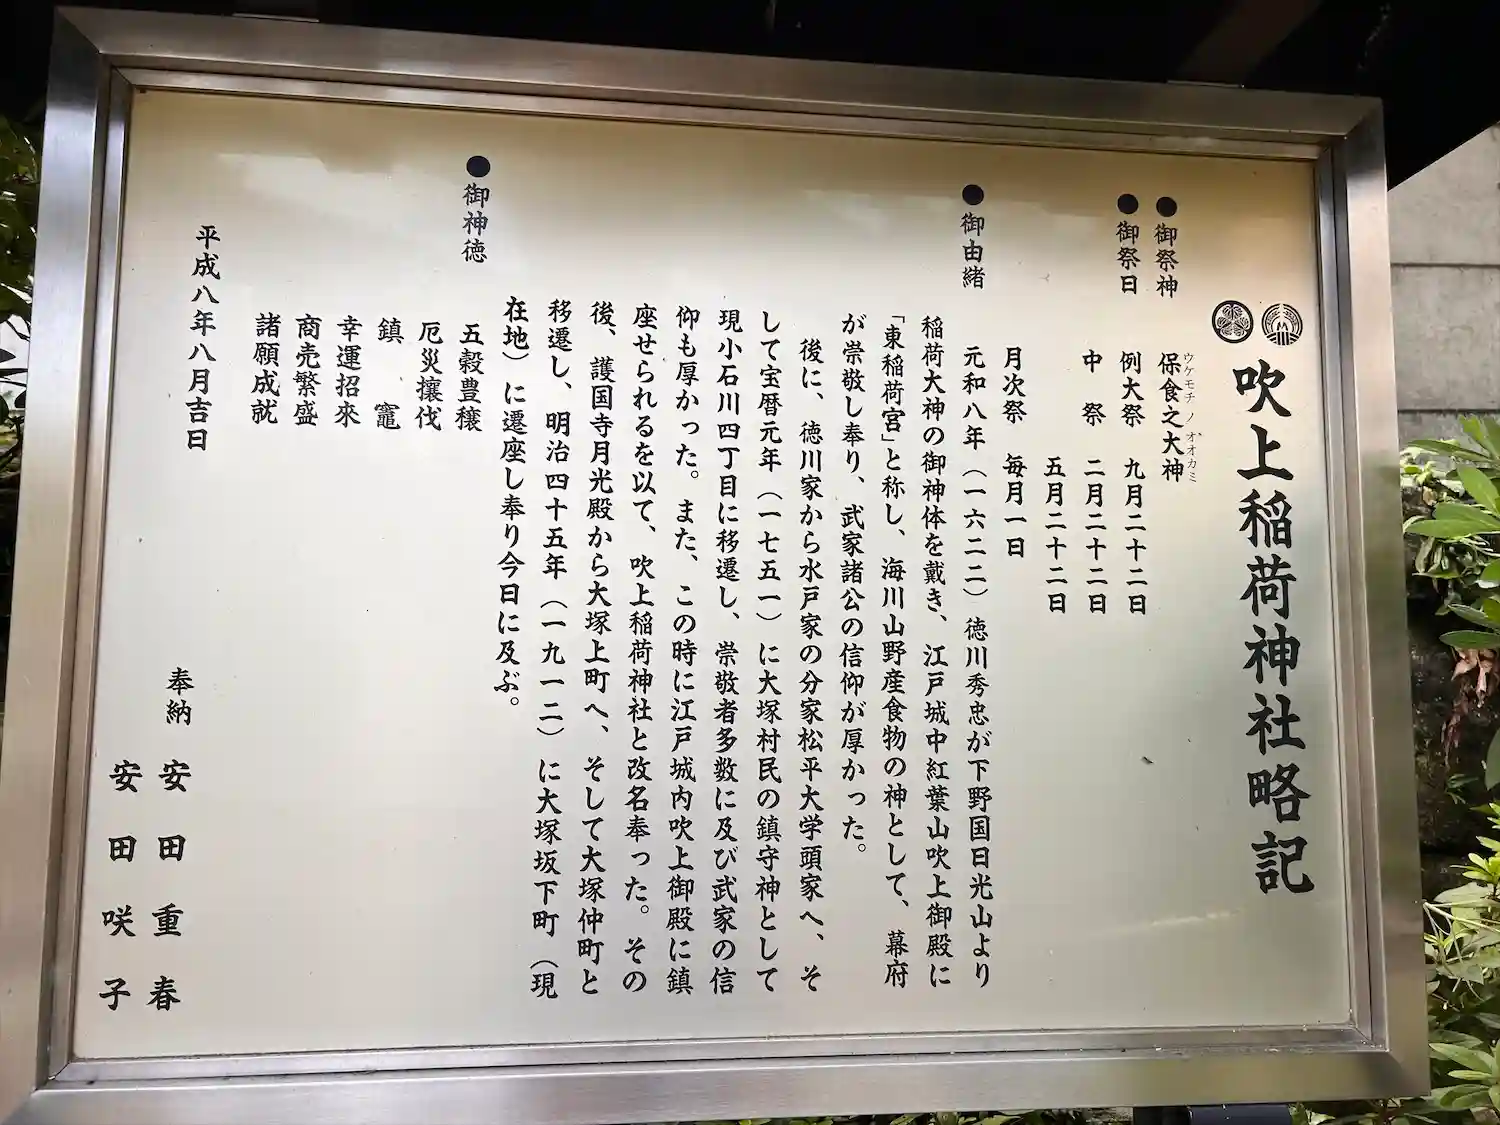 吹上稲荷神社略記
●御祭神 保食之大神
ウケモチノオオカミ
●御祭日 例大祭 九月二十二日
中祭 二月二十二日
五月二十二日
月次祭 毎月一日
●御由緒 元和八年（一六二二）徳川秀忠が下野国日光山より
稲荷大神の御神体を戴き、江戸城中紅葉山吹上御殿に
「東稲荷宮」と称し、海川山野産食物の神として、幕府
が崇敬し奉り、武家諸公の信仰が厚かった。
後に、徳川家から水戸家の分家松平大学頭家へ、そ
して宝暦元年（一七五一）に大塚村民の鎮守神として
現小石川四丁目に移遷し、崇敬者多数に及び武家の信
仰も厚かった。また、この時に江戸城内吹上御殿に鎮
座せられるを以て、吹上稲荷神社と改名奉った。その
後、護国寺月光殿から大塚上町へ、そして大塚仲町と
移遷し、明治四十五年（一九一二）に大塚坂下町（現
在地）に遷座し奉り今日に及ぶ。
●御神徳 五穀豊穣
厄災攘伐
鎮竈
幸運招來
商売繁盛
諸願成就
平成八年八月吉日
奉納 安田重春
安田咲子